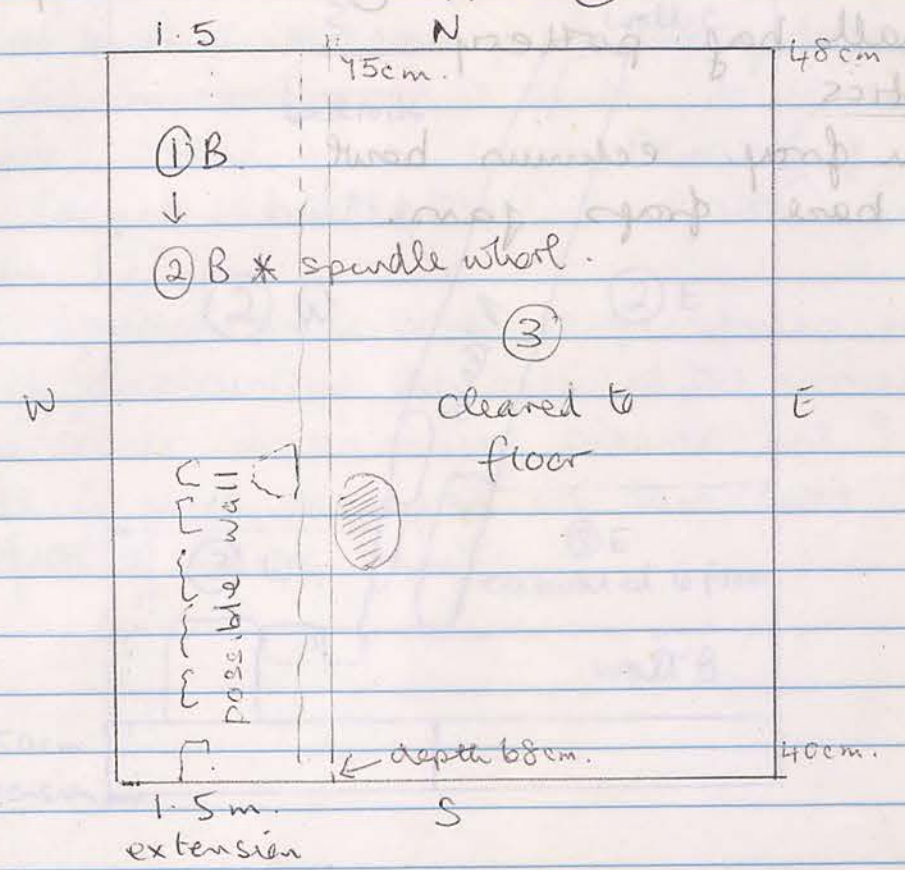 1.5 N
75cm. 48cm
① B
↓
② B * spindle whorl.
③
W cleared to E
floor
possible wall
depth 68cm. 40cm.
1.5m. S
extension